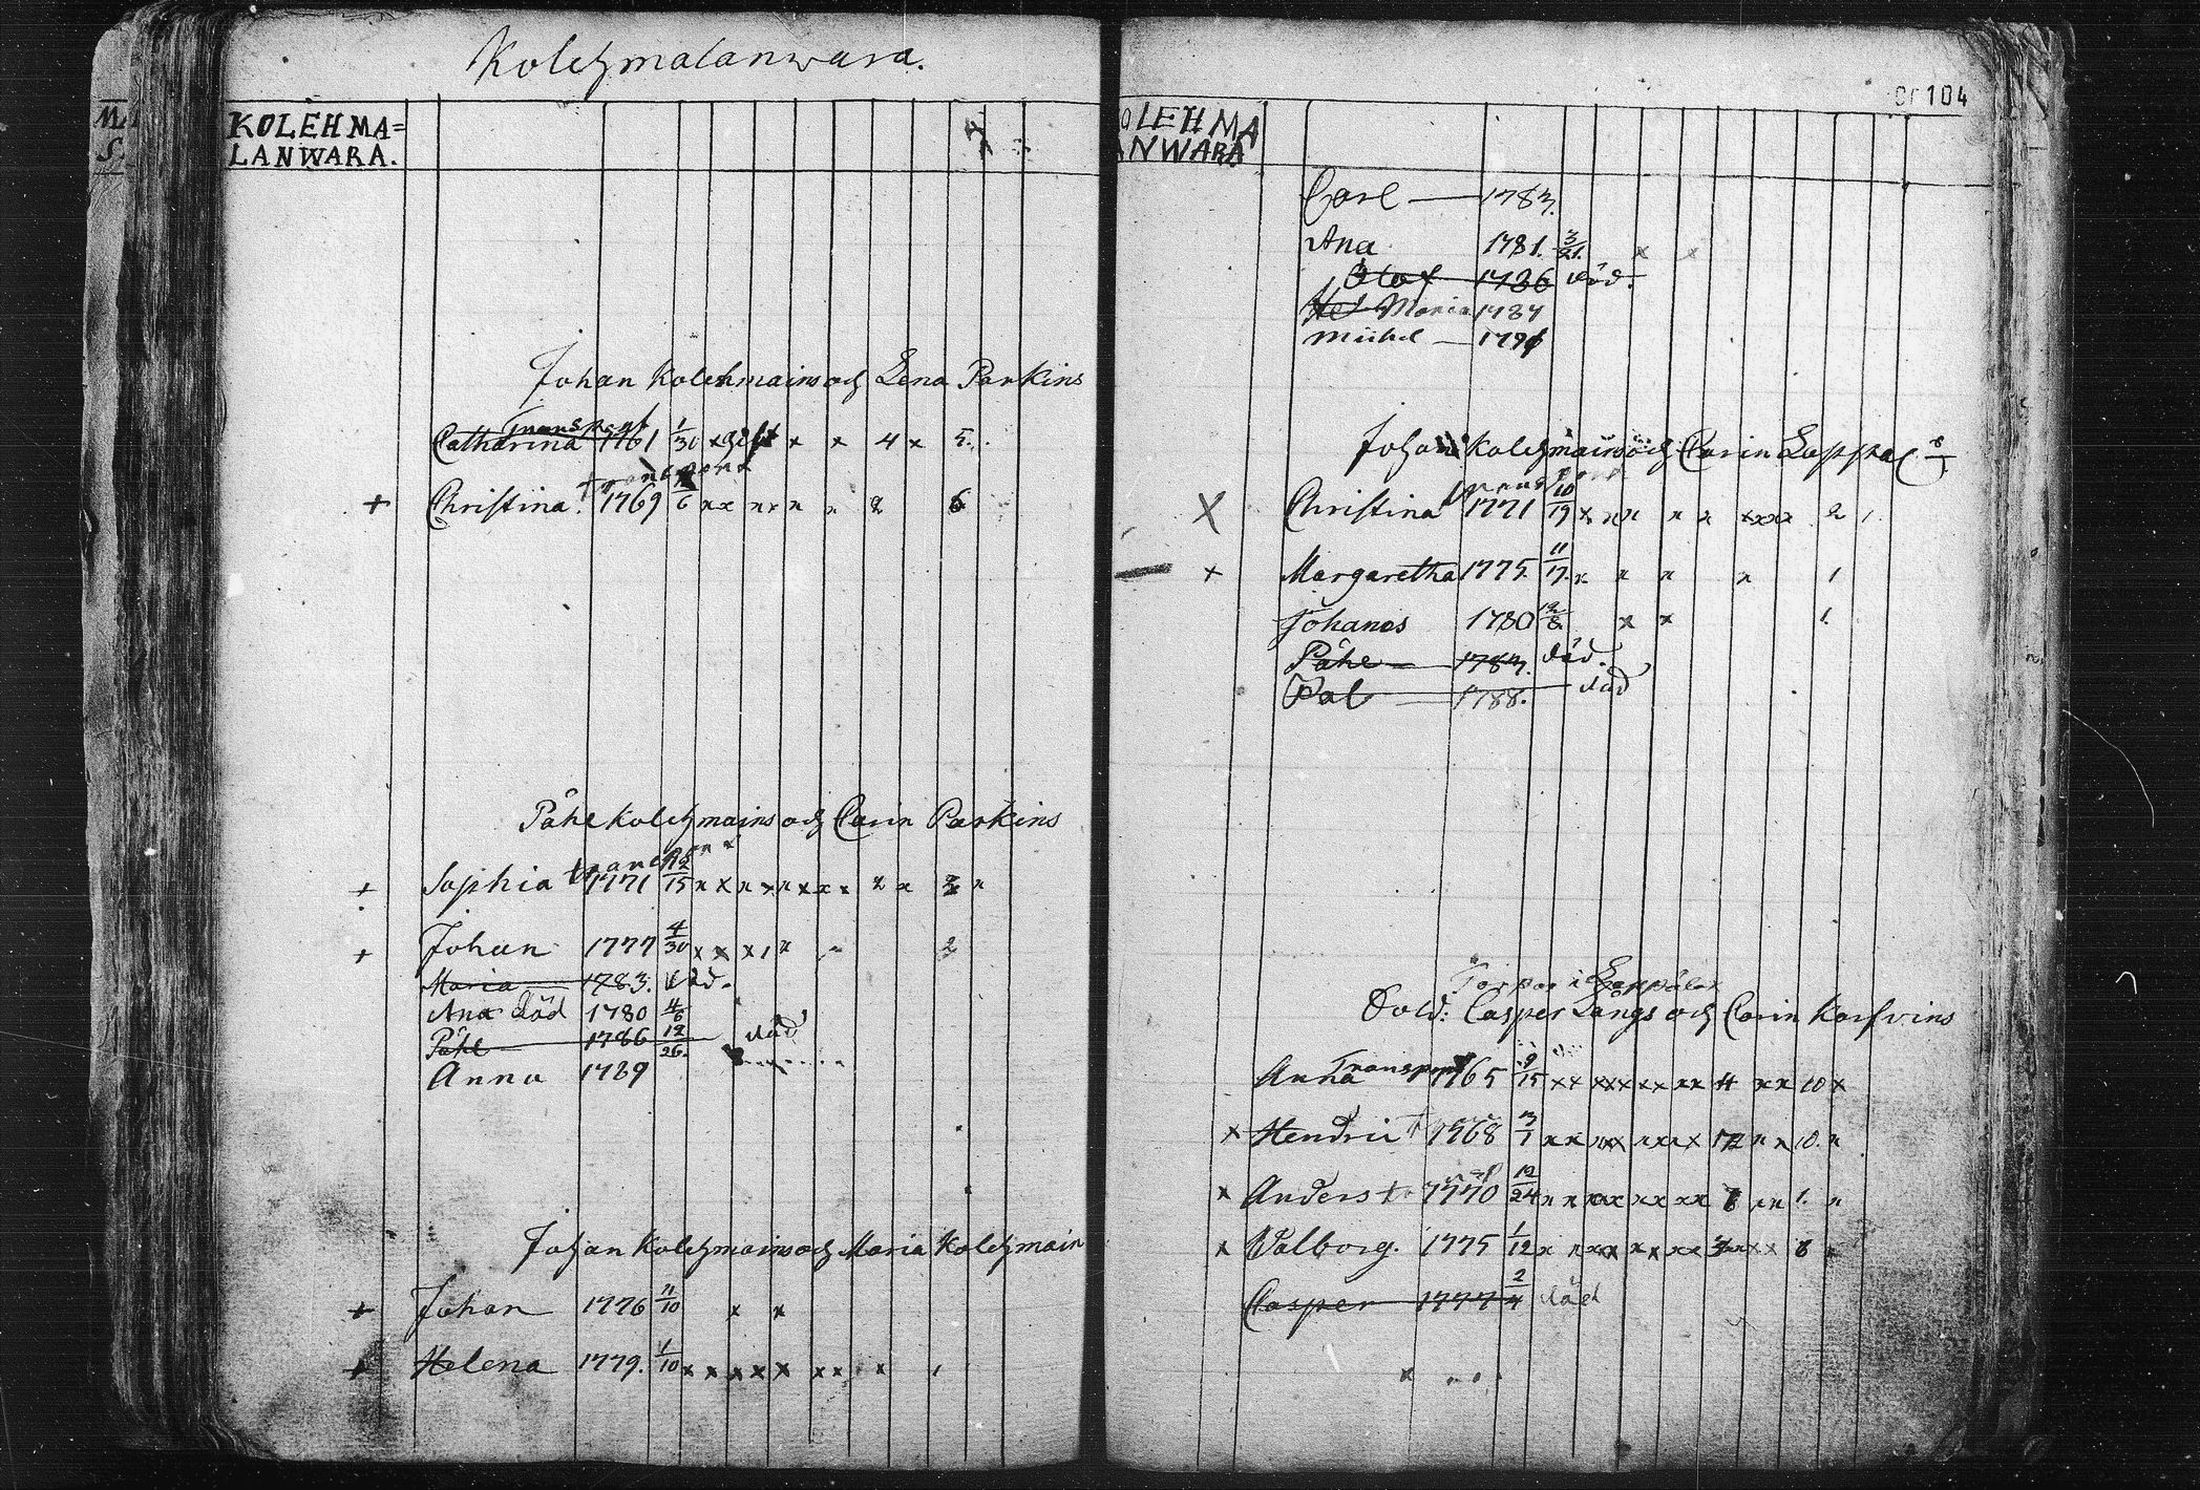 Kolehmalanwara.
KOLEHMA=
LANWARA.
Johan Kolehmain och Lena Parkins
Transport
Catharina 1761 1/30 x gift x x 4 x 5.
transport
+ Christina. 1769 6 x x x x x x 2 6
Påhl Kolehmains och Carin Parkins
transport
+ Sophia 1771 12/15 x x x x x x x x 2 x 3 x
+ Johan 1777 4/30 x x x 1 x 2
Maria 1783. död.
Ana död 1780 4/6
Påhl 1786 12/26. död
Anna 1789
Johan Kolehmain och Maria Kolehmain
+ Johan 1776 11/10 x x
+ Helena 1779. 1/10 x x x x x x x x
104
OLEHMA
ANWARA
Carl 1783.
Ana 1781. 3/21. x x
Olof 1786 död.
Hel Maria 1787
Michel 179
Johan Kolehmains och Carin Loppa
transport
X Christina 1771 10/19 x x x x x x x x x 2 1
x Margaretha 1775. 11/17. x x x x 1
Johanes 1780 12/8. x x 1.
Påhl 1783. död.
Pål 1788. död
Torpar i
Sold: Casper Långs och Carin Karfvins
Transport
Anna 1765 9/15 x x x x x x x x x 4 x x 10 x
x Hendric 1768 3/1 x x x x x x x x 12 x x 10. x
x Anders 1770 12/24 x x x x x x x x 8 x x 1. x
x Walborg. 1775 1/12 x x x x x x x x x x 8
Casper 1777 2/4 död